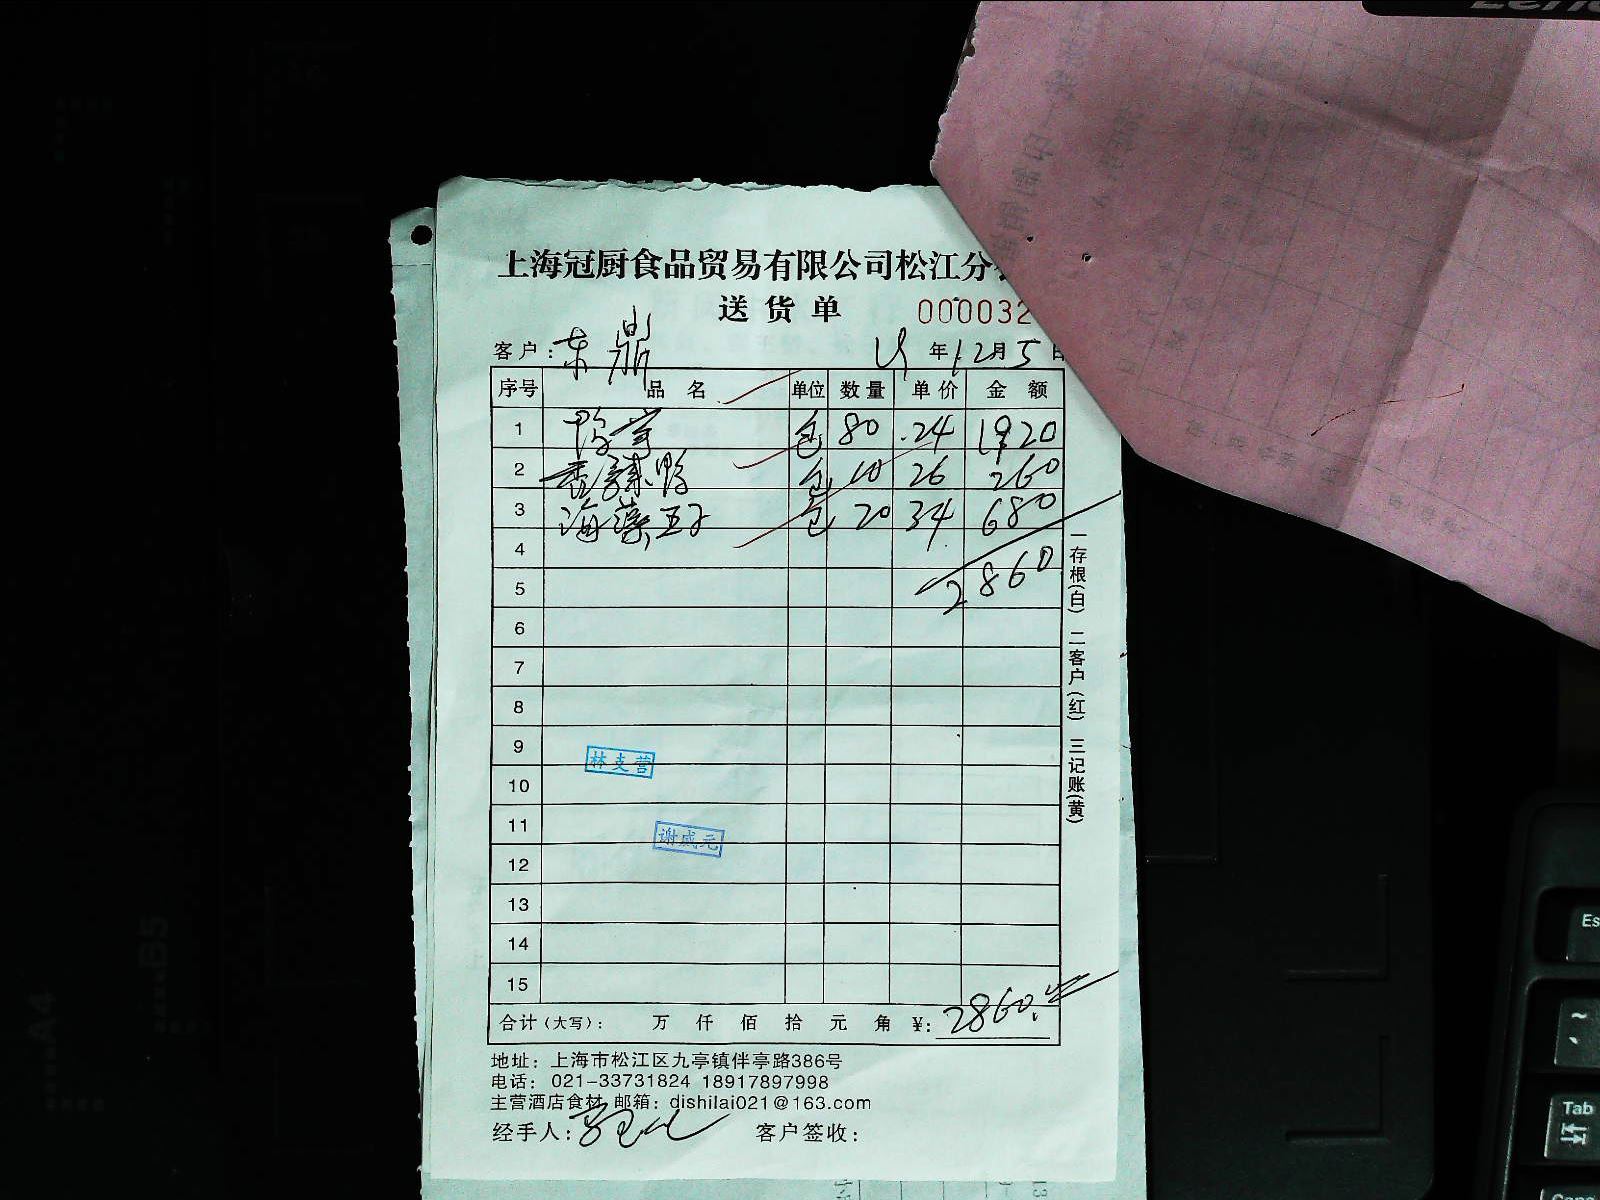 上海冠厨食品贸易有限公司松江分
送货单 0000032
客户: 东鼎 年12月5日
序号 品名 单位 数量 单价 金额
1 包 80 24 1920
2 香辣鸭 包 10 26 260
3 海藻 包 20 34 680
4
5 2860
6
7
8
9
林支营
10
11
谢咸元
12
13
14
15
合计(大写): 万 仟 佰 拾 元 角 ¥: 2860.
地址: 上海市松江区九亭镇伴亭路386号
电话: 021-33731824 18917897998
主营酒店食材 邮箱: dishilai021@163.com
经手人: 客户签收:
一存根(白) 二客户(红) 三记账(黄)
A4
B5
Es
~
Tab